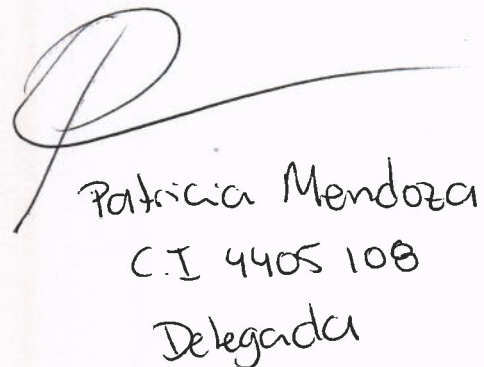 Patricia Mendoza
C.I 4405 108
Delegada